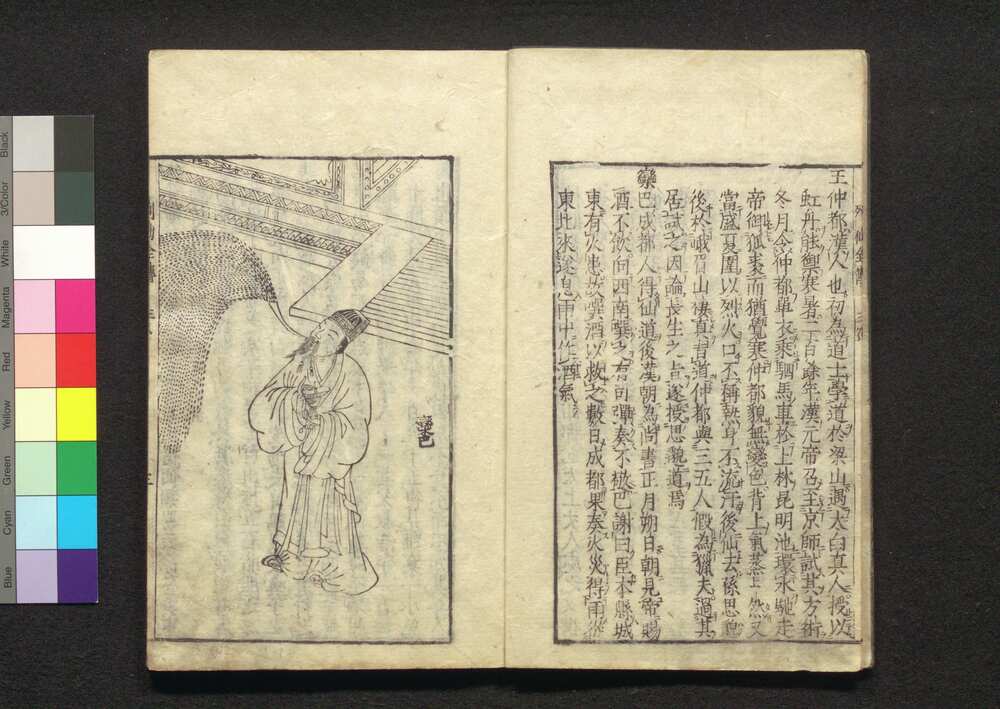 王仲都漢人也初為道士學道於梁山遇太白真人授以
虹丹能禦寒暑二百餘年漢元帝召至京師試其方術
冬月令仲都單衣乘駟馬車於上林昆明池環水馳走
帝御狐裘而猶覺寒仲都貌無變色背上氣蒸上然又
當盛夏圍以烈火口不稱熱身不流汗後仙去孫思邈
後於峨眉山棲真昔道仲都與三五人假為獵夫過其
居試之因論長生之旨遂授思邈道焉
欒巴成都人得仙道後漢朝為尚書正月朔日朝見帝賜
酒不飲向西南噀之有司彈奏不敬巴謝曰臣本縣城
東有火患故噀酒以救之數日成都果奏火災得雨從
東北來遂息雨中作酒氣
欒巴
三
Black
3/Color
White
Magenta
Red
Yellow
Green
Cyan
Blue